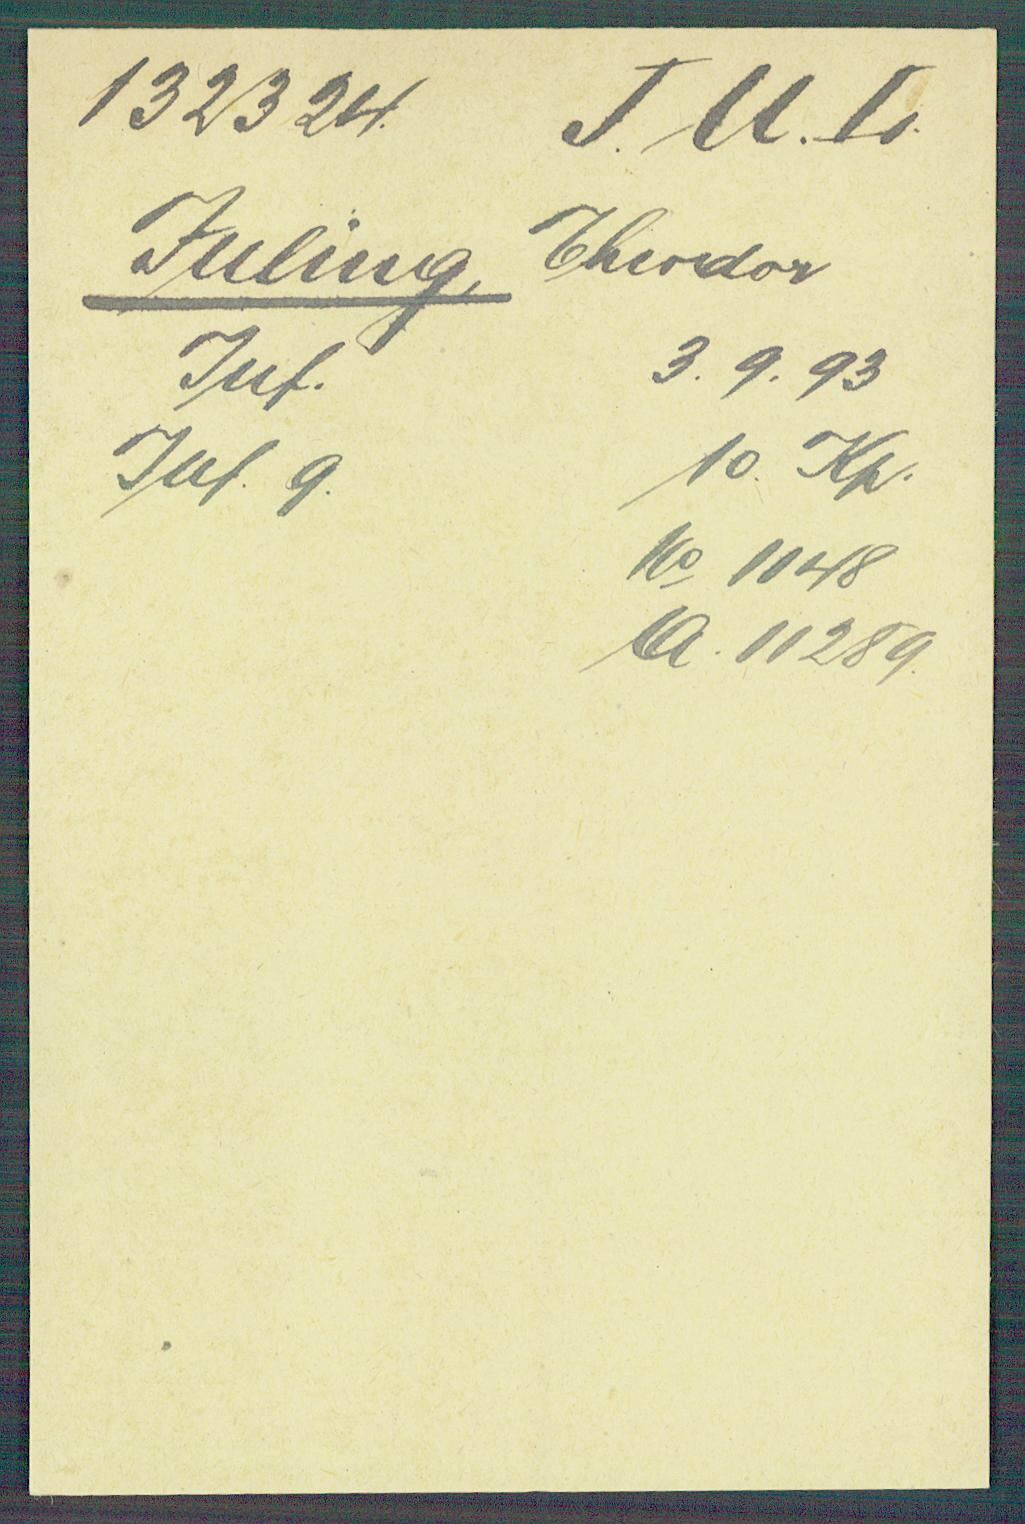 132324. J. U. D.
Juling, Theodor
Inf. 3. 9. 93
Inf. 9. 10. Kp.
No 1148
A. 11289.